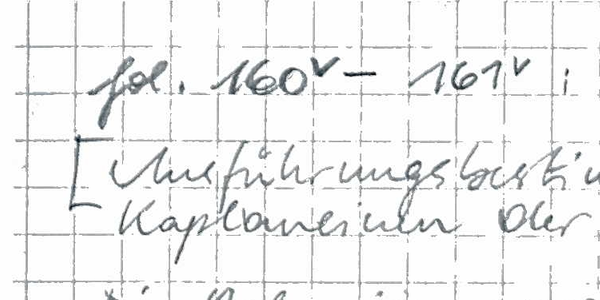 fol. 160v – 161v :
[Ausführungsbesti
Kaplaneien der